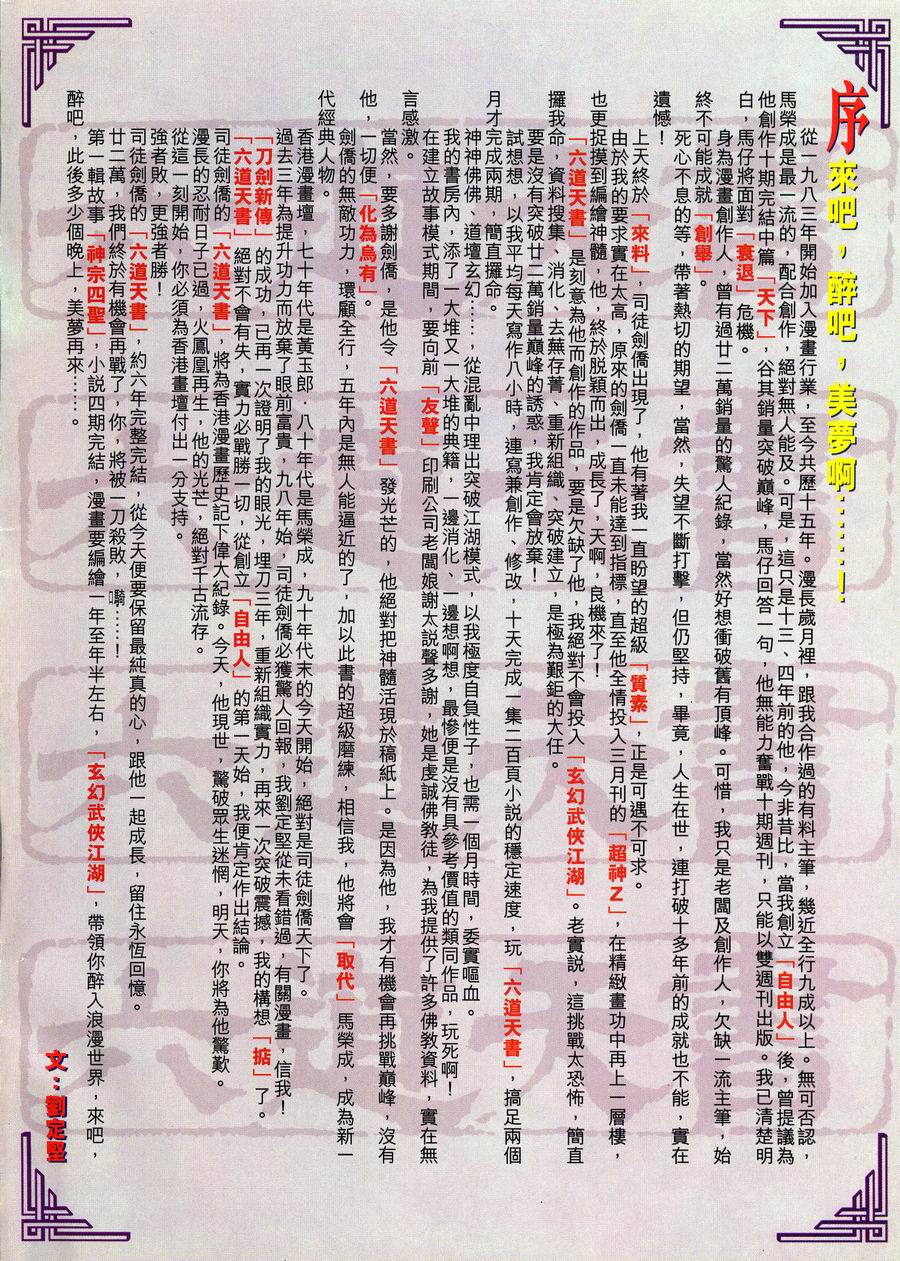 序
來吧，醉吧，美夢啊……！
從一九八三年開始加入漫畫行業，至今共歷十五年。漫長歲月裡，跟我合作過的有料主筆，幾近全行九成以上。無可否認，
馬榮成是最一流的，配合創作，絕對無人能及。可是，這只是十三、四年前的他，今非昔比，當我創立「自由人」後，曾提議為
他創作十期完結中篇「天下」，谷其銷量突破巔峰，馬仔回答一句，他無能力奮戰十期週刊，只能以雙週刊出版。我已清楚明
白，馬仔將面對「衰退」危機。
身為漫畫創作人，曾有過廿二萬銷量的驚人紀錄，當然好想衝破舊有頂峰。可惜，我只是老闆及創作人，欠缺一流主筆，始
終不可能成就「創舉」。
死心不息的等，帶著熱切的期望，當然，失望不斷打擊，但仍堅持，畢竟，人生在世，連打破十多年前的成就也不能，實在
遺憾！
上天終於「來料」，司徒劍僑出現了，他有著我一直盼望的超級「質素」，正是可遇不可求。
由於我的要求實在太高，原來的劍僑一直未能達到指標，直至他全情投入三月刊的「超神Z」，在精緻畫功中再上一層樓，
也更捉摸到編繪神髓，他，終於脫穎而出，成長了，天啊，良機來了！
「六道天書」是刻意為他而創作的作品，要是欠缺了他，我絕對不會投入「玄幻武俠江湖」。老實說，這挑戰太恐怖，簡直
攞我命，資料搜集、消化、去蕪存菁、重新組織、突破建立，是極為艱鉅的大任。
要是沒有突破廿二萬銷量巔峰的誘惑，我肯定會放棄！
試想想，以我平均每天寫作八小時，連寫兼創作、修改，十天完成一集二百頁小說的穩定速度，玩「六道天書」，搞足兩個
月才完成兩期，簡直攞命。
神神佛佛、道壇玄幻……，從混亂中理出突破江湖模式，以我極度自負性子，也需一個月時間，委實嘔血。
我的書房內，添了一大堆又一大堆的典籍，一邊消化、一邊想啊想，最慘便是沒有具參考價值的類同作品，玩死啊！
在建立故事模式期間，要向前「友聲」印刷公司老闆娘謝太說聲多謝，她是虔誠佛教徒，為我提供了許多佛教資料，實在無
言感激。
當然，要多謝劍僑，是他令「六道天書」發光芒的，他絕對把神髓活現於稿紙上。是因為他，我才有機會再挑戰巔峰，沒有
他，一切便「化為烏有」。
劍僑的無敵功力，環顧全行，五年內是無人能逼近的了，加以此書的超級磨練，相信我，他將會「取代」馬榮成，成為新一
代經典人物。
香港漫畫壇，七十年代是黃玉郎，八十年代是馬榮成，九十年代末的今天開始，絕對是司徒劍僑天下了。
過去三年為提升功力而放棄了眼前富貴，九八年始，司徒劍僑必獲驚人回報，我劉定堅從未看錯過，有關漫畫，信我！
「刀劍新傳」的成功，已再一次證明了我的眼光，埋刀三年，重新組織實力，再來一次突破震撼，我的構想「掂」了。
「六道天書」絕對不會有失，實力必戰勝一切，從創立「自由人」的第一天始，我便肯定作出結論。
司徒劍僑的「六道天書」，將為香港漫畫歷史記下偉大紀錄。今天，他現世，驚破眾生迷惘，明天，你將為他驚歎。
漫長的忍耐日子已過，火鳳凰再生，他的光芒，絕對千古流存。
從這一刻開始，你必須為香港畫壇付出一分支持。
強者敗，更強者勝！
司徒劍僑的「六道天書」，約六年完整完結，從今天便要保留最純真的心，跟他一起成長，留住永恆回憶。
廿二萬，我們終於有機會再戰了，你，將被一刀殺敗，……！
第一輯故事「神宗四聖」，小說四期完結，漫畫要編繪一年至年半左右，「玄幻武俠江湖」，帶領你醉入浪漫世界，來吧，
醉吧，此後多少個晚上，美夢再來……。
文：劉定堅